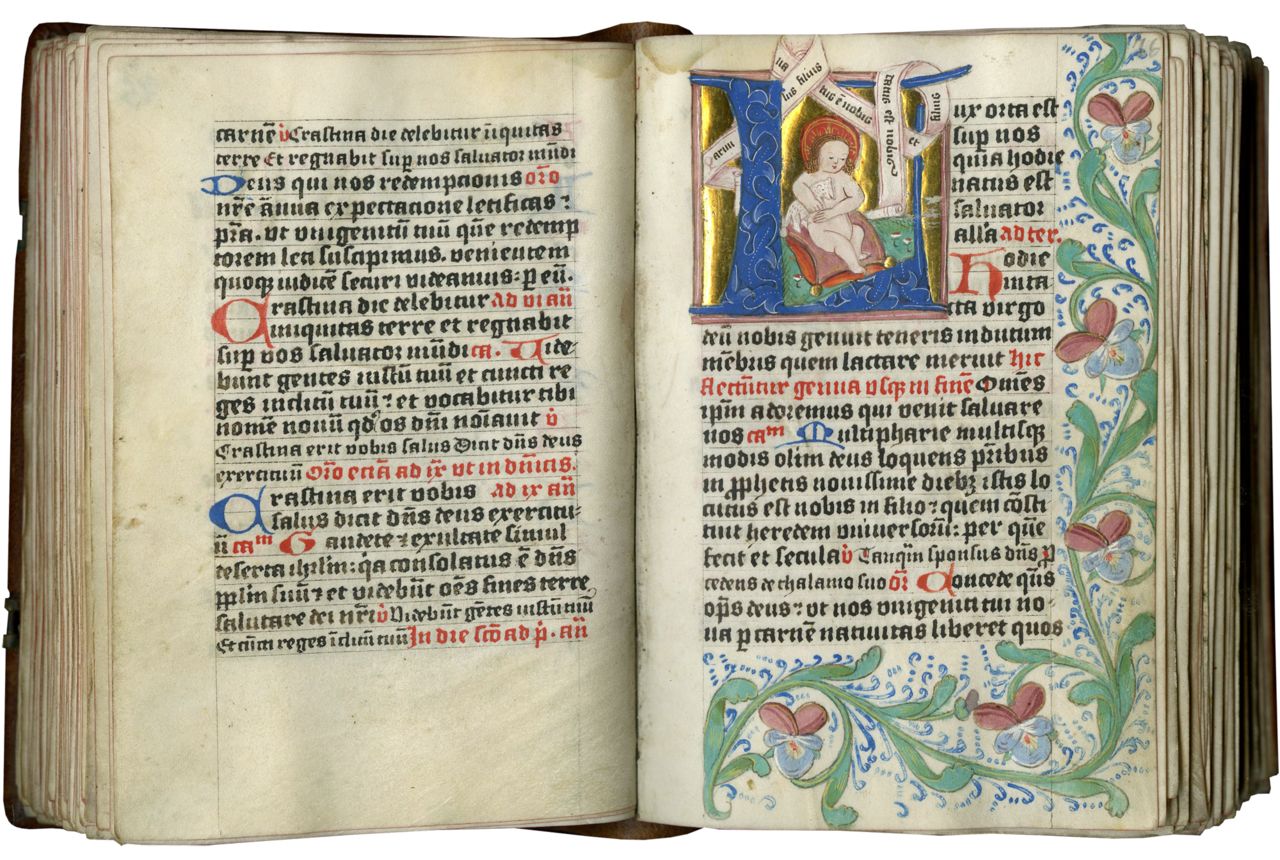 carnē v̄ Crastina die delebitur īiquitas
terre Et regnabit suꝑ nos saluator mūdi
Deus qui nos redempcionis oro
nr̄e ānua expectacione letificas ⁊
pr̄a. vt vnigenitū tuū quē redemp
torem leti suscipimus. venientem
quoqꝫ iudicē securi videamus: ꝑ eū.
Crastina die delebitur ad vi an̄
iniquitas terre et regnabit
suꝑ vos saluator mūdi ca. Vide-
bunt gentes iustū tuū et cuncti re
ges inclitū tuū ⁊ et vocabitur tibi
nomē nouū qd os dn̄i noīauit v̄
Crastina erit vobis salus Dicit dn̄s deus
exercituū Oro ecīā ad ix vt in dn̄icis.
Crastina erit vobis ad ix an̄
salus dicit dn̄s deus exercitu-
ū camͫ Gaudete ⁊ exultate simul
deserta ihrlm: qa consolatus ē dn̄s
pplm suū ⁊ et videbūt oēs fines terre
salutare dei nr̄i v̄ Videbūt gētes iustū tuū
Et cūcti reges īclitū tuū In die scō ad p̄. an̄
natus est nobis
et
filius
Lux orta est
suꝑ nos
quia hodie
natus est
saluator
alla ad ter.
Hodie
inta
cta virgo
deū nobis genuit teneris indutum
mēbris quem lactare meruit hic
flectūtur genua vsqꝫ in finē Om̄es
ipm̄ adoremus qui venit saluare
nos camͫ Multipharie multisqꝫ
modis olim deus loquens pr̄ibus
in ꝓphetis nouissime diebꝫ istis lo
cutus est nobis in filio ⁊ quem cōsti
tuit heredem vniuersorū: per quē
fecit et secula v̄ Tanqm̄ sponsus dn̄s ꝓ
cedens de thalamo suo or̄ Concede qs̄
op̄s deus ⁊ vt nos vnigeniti tui no-
ua ꝑ carnē natiuitas liberet quos